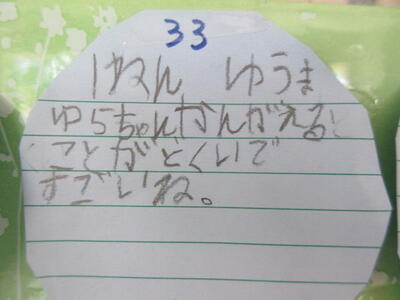 33
1ねん ゆうま
ゆうちゃんかんがえる
ことがとくいで
すごいね。